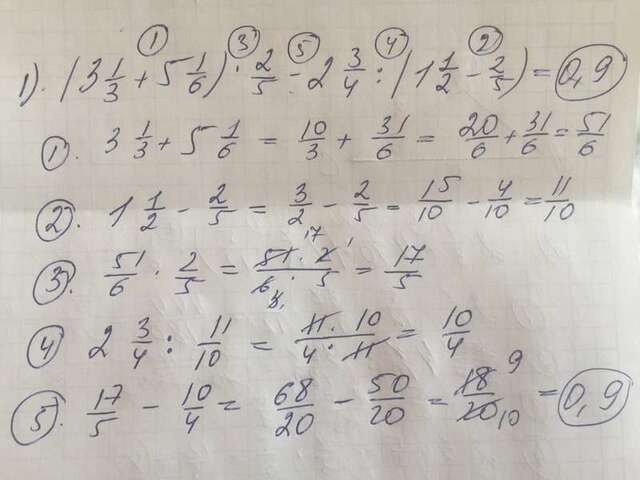 1). (3 1/3 + 5 1/6) · 2/5 - 2 3/4 : (1 1/2 - 2/5) = 0,9
① ③ ⑤ ④ ②
①. 3 1/3 + 5 1/6 = 10/3 + 31/6 = 20/6 + 31/6 = 51/6
②. 1 1/2 - 2/5 = 3/2 - 2/5 = 15/10 - 4/10 = 11/10
③. 51/6 · 2/5 = 51 · 2 / 6 · 5 = 17/5
④ 2 3/4 : 11/10 = 11 · 10 / 4 · 11 = 10/4
⑤. 17/5 - 10/4 = 68/20 - 50/20 = 18/20 9/10 = 0,9